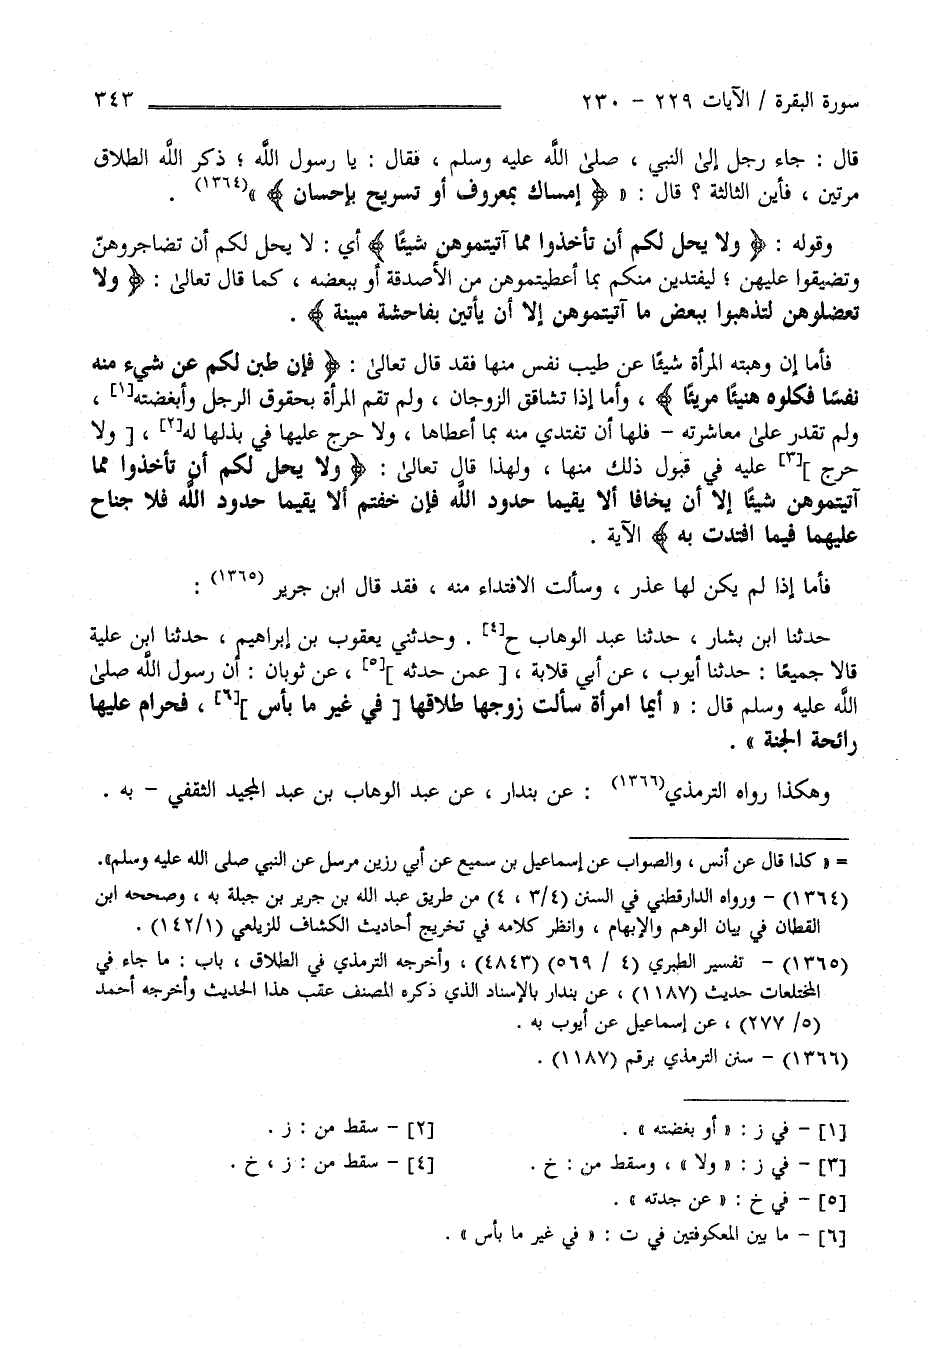 سورة البقرة / الآيات ٢٢٩ - ٢٣٠ ٣٤٣
قال : جاء رجل إلىٰ النبي ، صلىٰ اللَّه عليه وسلم ، فقال : يا رسول اللَّه ؛ ذكر اللَّه الطلاق
مرتين ، فأين الثالثة ؟ قال : « ﴿ إمساك بمعروف أو تسريح بإحسان ﴾ »(١٣٦٤) .
وقوله : ﴿ ولا يحل لكم أن تأخذوا مما آتيتموهن شيئًا ﴾ أي : لا يحل لكم أن تضاجروهنّ
وتضيقوا عليهن ؛ ليفتدين منكم بما أعطيتموهن من الأصدقة أو ببعضه ، كما قال تعالىٰ : ﴿ ولا
تعضلوهن لتذهبوا ببعض ما آتيتموهن إلا أن يأتين بفاحشة مبينة ﴾ .
فأما إن وهبته المرأة شيئًا عن طيب نفس منها فقد قال تعالىٰ : ﴿ فإن طبن لكم عن شيء منه
نفسًا فكلوه هنيئًا مريئًا ﴾ ، وأما إذا تشاقق الزوجان ، ولم تقم المرأة بحقوق الرجل وأبغضته[١] ،
ولم تقدر علىٰ معاشرته - فلها أن تفتدي منه بما أعطاها ، ولا حرج عليها في بذلها له[٢] ، [ ولا
حرج ][٣] عليه في قبول ذلك منها ، ولهذا قال تعالىٰ : ﴿ ولا يحل لكم أن تأخذوا مما
آتيتموهن شيئًا إلا أن يخافا ألا يقيما حدود اللَّه فإن خفتم ألا يقيما حدود اللَّه فلا جناح
عليهما فيما افتدت به ﴾ الآية .
فأما إذا لم يكن لها عذر ، وسألت الافتداء منه ، فقد قال ابن جرير (١٣٦٥) :
حدثنا ابن بشار ، حدثنا عبد الوهاب ح[٤] . وحدثني يعقوب بن إبراهيم ، حدثنا ابن علية
قالا جميعًا : حدثنا أيوب ، عن أبي قلابة ، [ عمن حدثه ][٥] ، عن ثوبان : أن رسول اللَّه صلىٰ
اللَّه عليه وسلم قال : « أيما امرأة سألت زوجها طلاقها [ في غير ما بأس ][٦] ، فحرام عليها
رائحة الجنة » .
وهكذا رواه الترمذي(١٣٦٦) : عن بندار ، عن عبد الوهاب بن عبد المجيد الثقفي - به .
= « كذا قال عن أنس ، والصواب عن إسماعيل بن سميع عن أبي رزين مرسل عن النبي صلى الله عليه وسلم».
(١٣٦٤) - ورواه الدارقطني في السنن (٣/٤ ، ٤) من طريق عبد الله بن جرير بن جبلة به ، وصححه ابن
القطان في بيان الوهم والإبهام ، وانظر كلامه في تخريج أحاديث الكشاف للزيلعي (١٤٢/١) .
(١٣٦٥) - تفسير الطبري (٤ / ٥٦٩) (٤٨٤٣) ، وأخرجه الترمذي في الطلاق ، باب : ما جاء في
المختلعات حديث (١١٨٧) ، عن بندار بالإسناد الذي ذكره المصنف عقب هذا الحديث وأخرجه أحمد
(٥/ ٢٧٧) ، عن إسماعيل عن أيوب به .
(١٣٦٦) - سنن الترمذي برقم (١١٨٧) .
[١] - في ز : « أو بغضته » . [٢] - سقط من : ز .
[٣] - في ز : « ولا » ، وسقط من : خ . [٤] - سقط من : ز ، خ .
[٥] - في خ : « عن جدته » .
[٦] - ما بين المعكوفتين في ت : « في غير ما بأس » .